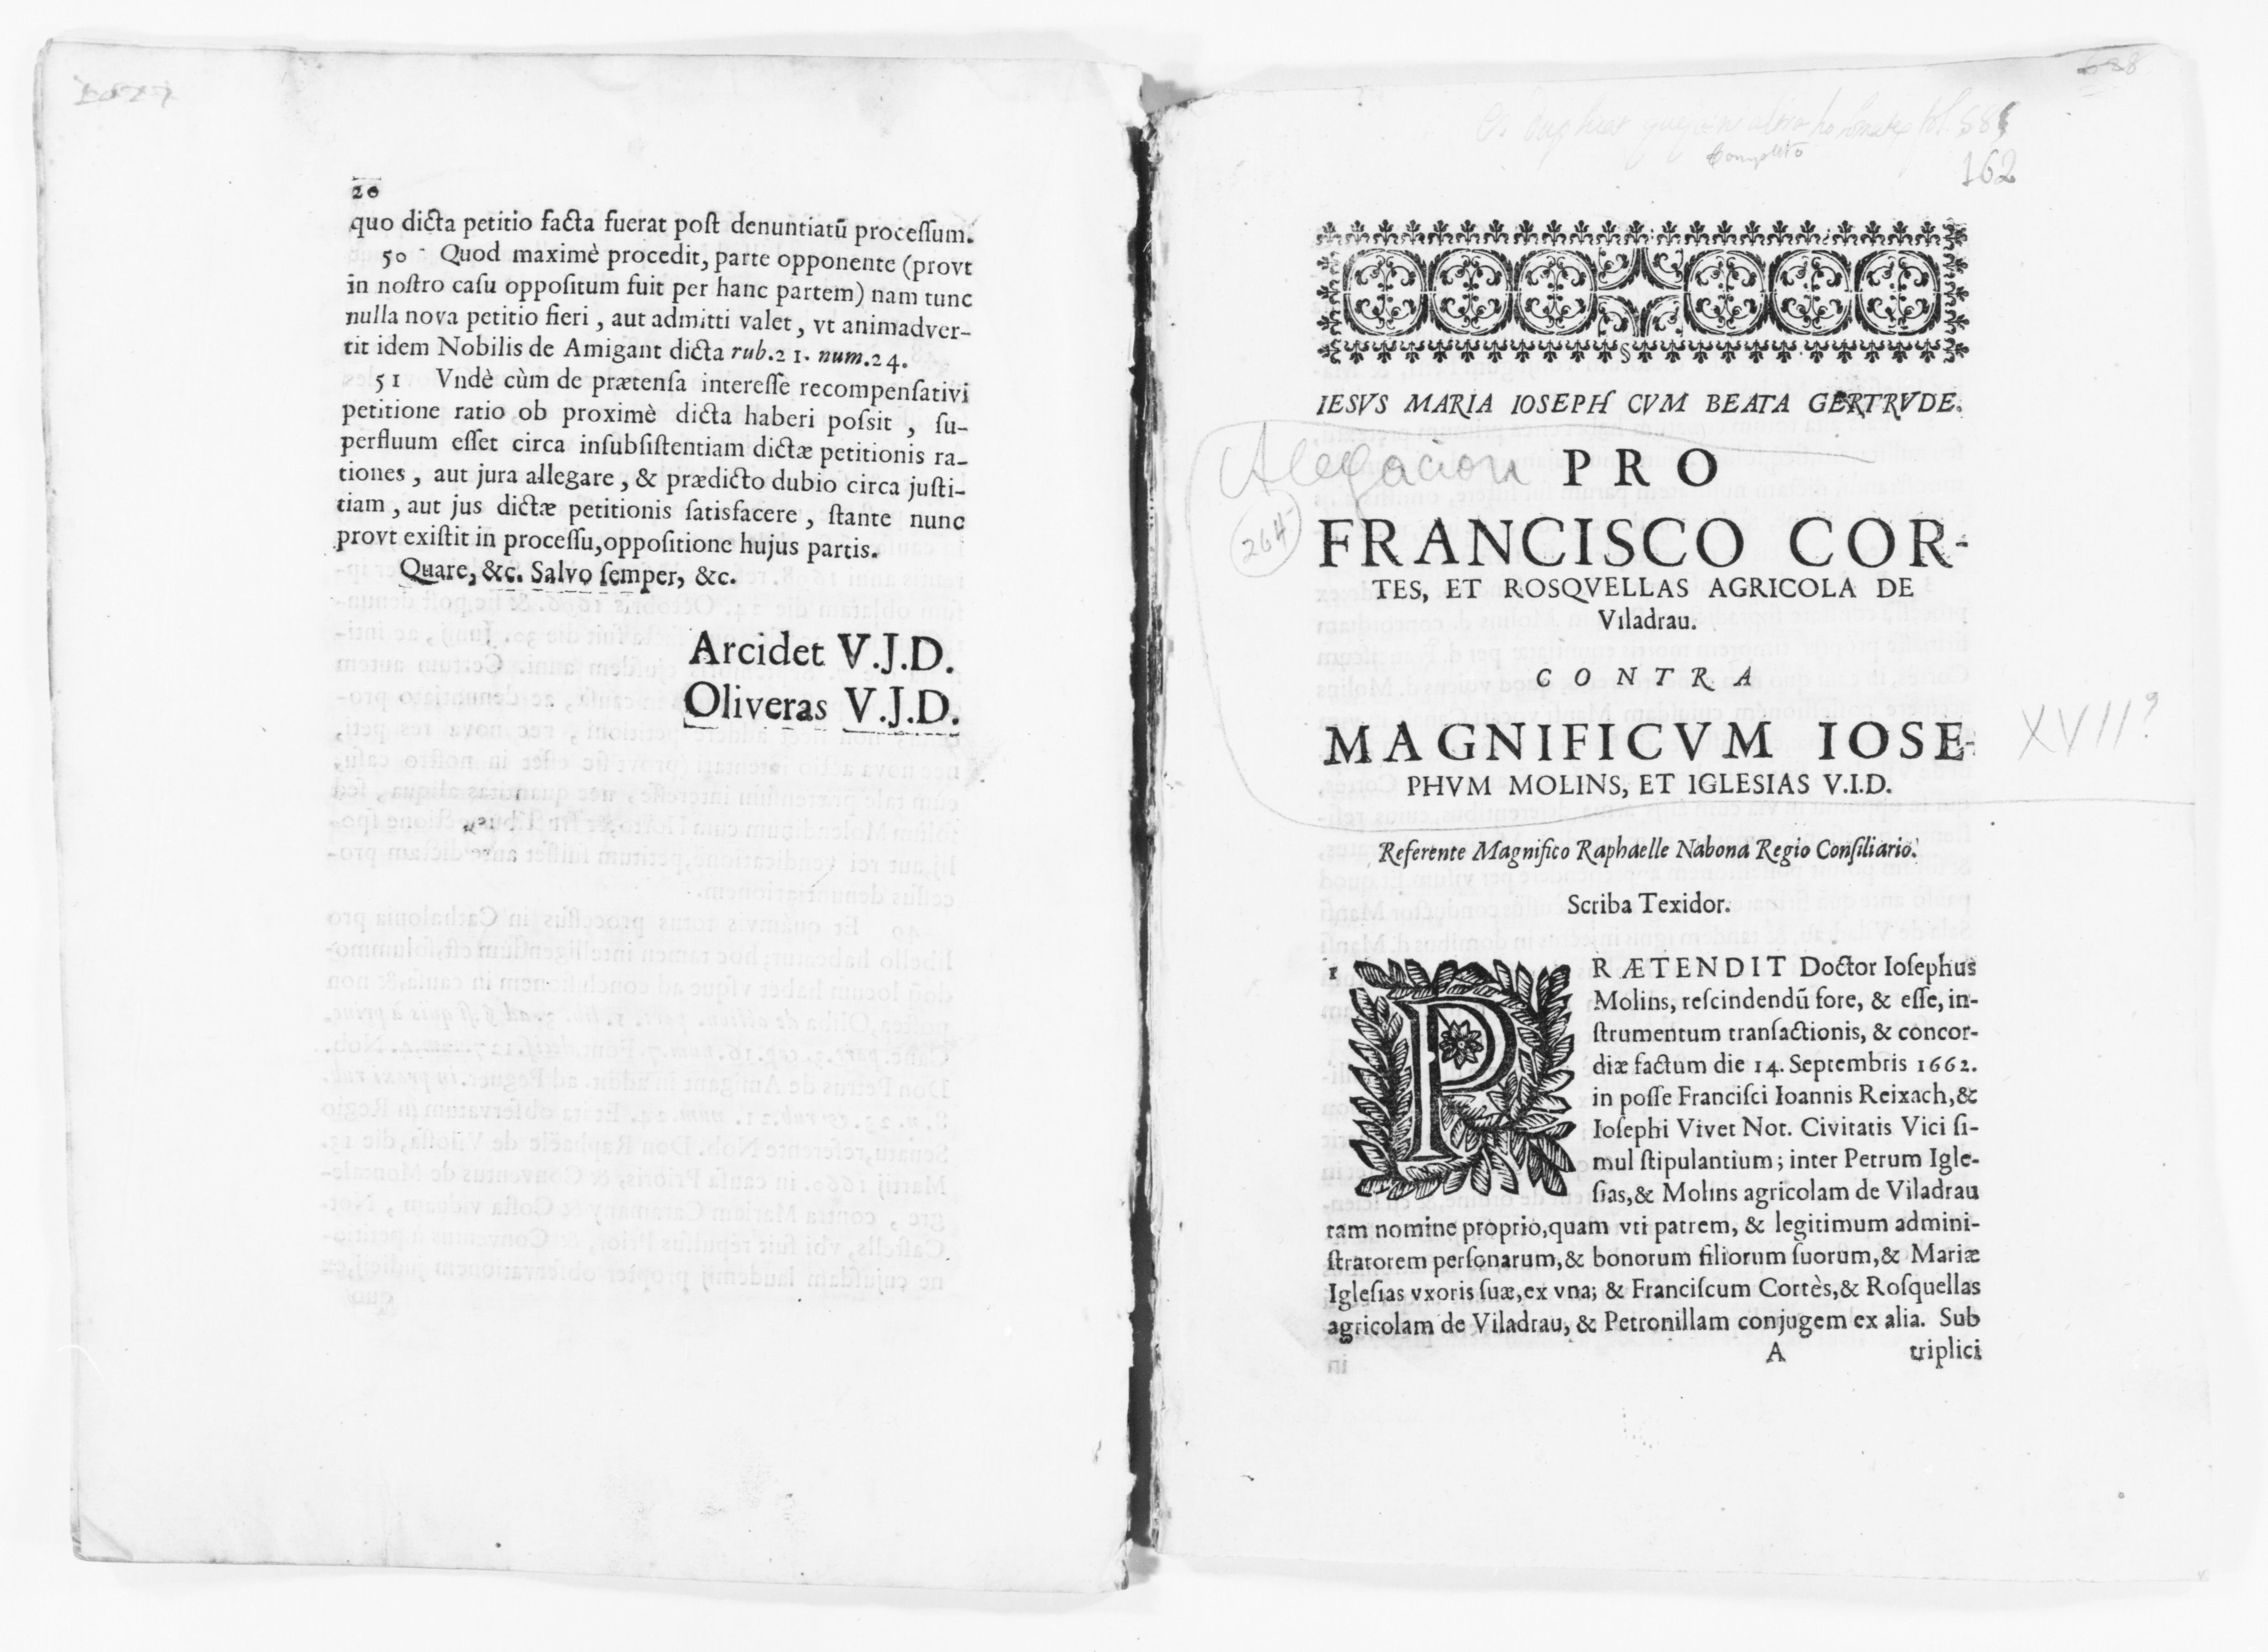 20
quo dicta petitio facta fuerat poſt denuntiatū proceſſum.
50 Quod maximè procedit, parte opponente (provt
in noſtro caſu oppoſitum fuit per hanc partem) nam tunc
nulla nova petitio fieri, aut admitti valet, vt animadver-
tit idem Nobilis de Amigant dicta rub.21. num.24.
51 Vndè cùm de prætenſa intereſſe recompenſativi
petitione ratio ob proximè dicta haberi poſsit, ſu-
perfluum eſſet circa inſubſiſtentiam dictæ petitionis ra-
tiones, aut jura allegare, & prædicto dubio circa juſti-
tiam, aut jus dictæ petitionis ſatisfacere, ſtante nunc
provt exiſtit in proceſſu, oppoſitione hujus partis.
Quare, &c. Salvo ſemper, &c.
Arcidet V.J.D.
Oliveras V.J.D.
688
Completo
162
IESVS MARIA IOSEPH CVM BEATA GERTRVDE.
Alegacion PRO
264
FRANCISCO COR-
TES, ET ROSQVELLAS AGRICOLA DE
Viladrau.
CONTRA
MAGNIFICVM IOSE-
XVII?
PHVM MOLINS, ET IGLESIAS V.I.D.
Referente Magnifico Raphaelle Nabona Regio Conſiliario.
Scriba Texidor.
1 PRÆTENDIT Doctor Ioſephus
Molins, reſcindendū fore, & eſſe, in-
ſtrumentum tranſactionis, & concor-
diæ factum die 14. Septembris 1662.
in poſſe Franciſci Ioannis Reixach, &
Ioſephi Vivet Not. Civitatis Vici ſi-
mul ſtipulantium; inter Petrum Igle-
ſias, & Molins agricolam de Viladrau
tam nomine proprio, quam vti patrem, & legitimum admini-
ſtratorem perſonarum, & bonorum filiorum ſuorum, & Mariæ
Igleſias vxoris ſuæ, ex vna; & Franciſcum Cortès, & Roſquellas
agricolam de Viladrau, & Petronillam conjugem ex alia. Sub
A triplici